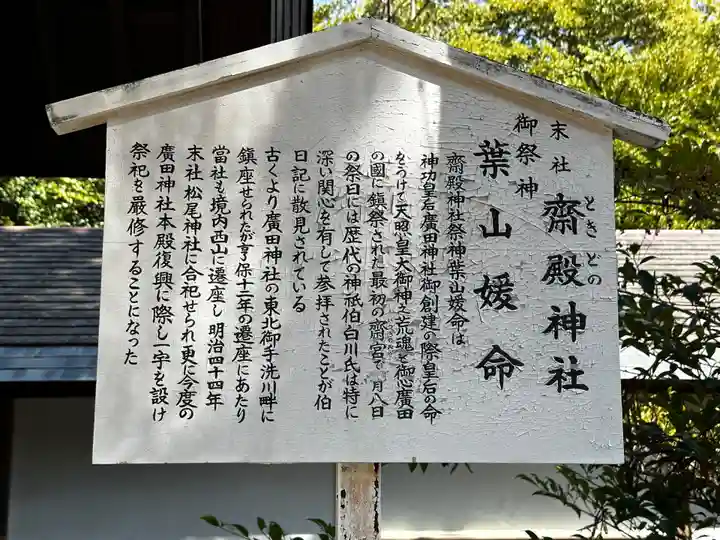 末社 齋殿神社
ときどの
御祭神 葉山媛命
齋殿神社祭神葉山媛命は
神功皇后廣田神社御創建の際皇后の命
をうけて天照皇大御神之荒魂を御心廣田
の國に鎮祭された最初の齋宮で 月八日
の祭日には歴代の神祇伯白川氏は特に
深い関心を有して参拝されたことが伯
日記に散見されている
古くより廣田神社の東北御手洗川畔に
鎮座せられたが亨保十二年の遷座にあたり
當社も境内西山に遷座し明治四十四年
末社松尾神社に合祀せられ更に今度の
廣田神社本殿復興に際し一宇を設け
祭祀を厳修することになった